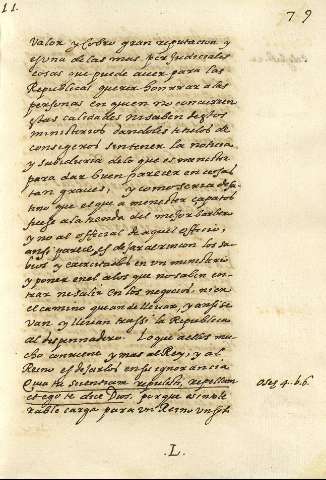 11.
79
valor y cobro gran reputacion y
es una de las mas perjudiciales
cosas que puede aver para las
Republicas querer honrrar a las
personas en quien no concurren
estas calidades ni saben destos
ministerios dandoles titulos de
consegeros sin tener la noticia
y sabiduria de lo que es menester
para dar buen parecer en cosas
tan graves, y como seria desa-
tino que el que a menester capatos
fuese a la tienda del mejor barbero
y no al official de aquel officio,
ansi parece es desaz los sa-
bios y exercitados en un ministerio
y poner en el a los que no saben en-
trar ni salir en los negocios ni en
el camino que an de llevar, y ansi se
van y llevan tras si la Republica
al despeñadero. Lo que a este mu-
cho conviene y mas al Rey, y al
Reino es dejarlos en su ignorancia
Quia tu scientiam repulisti, repellam
et ego te dice Dios, porque es intole-
rable carga para un Reino un solo
oseas 4. b. 6.
.L.